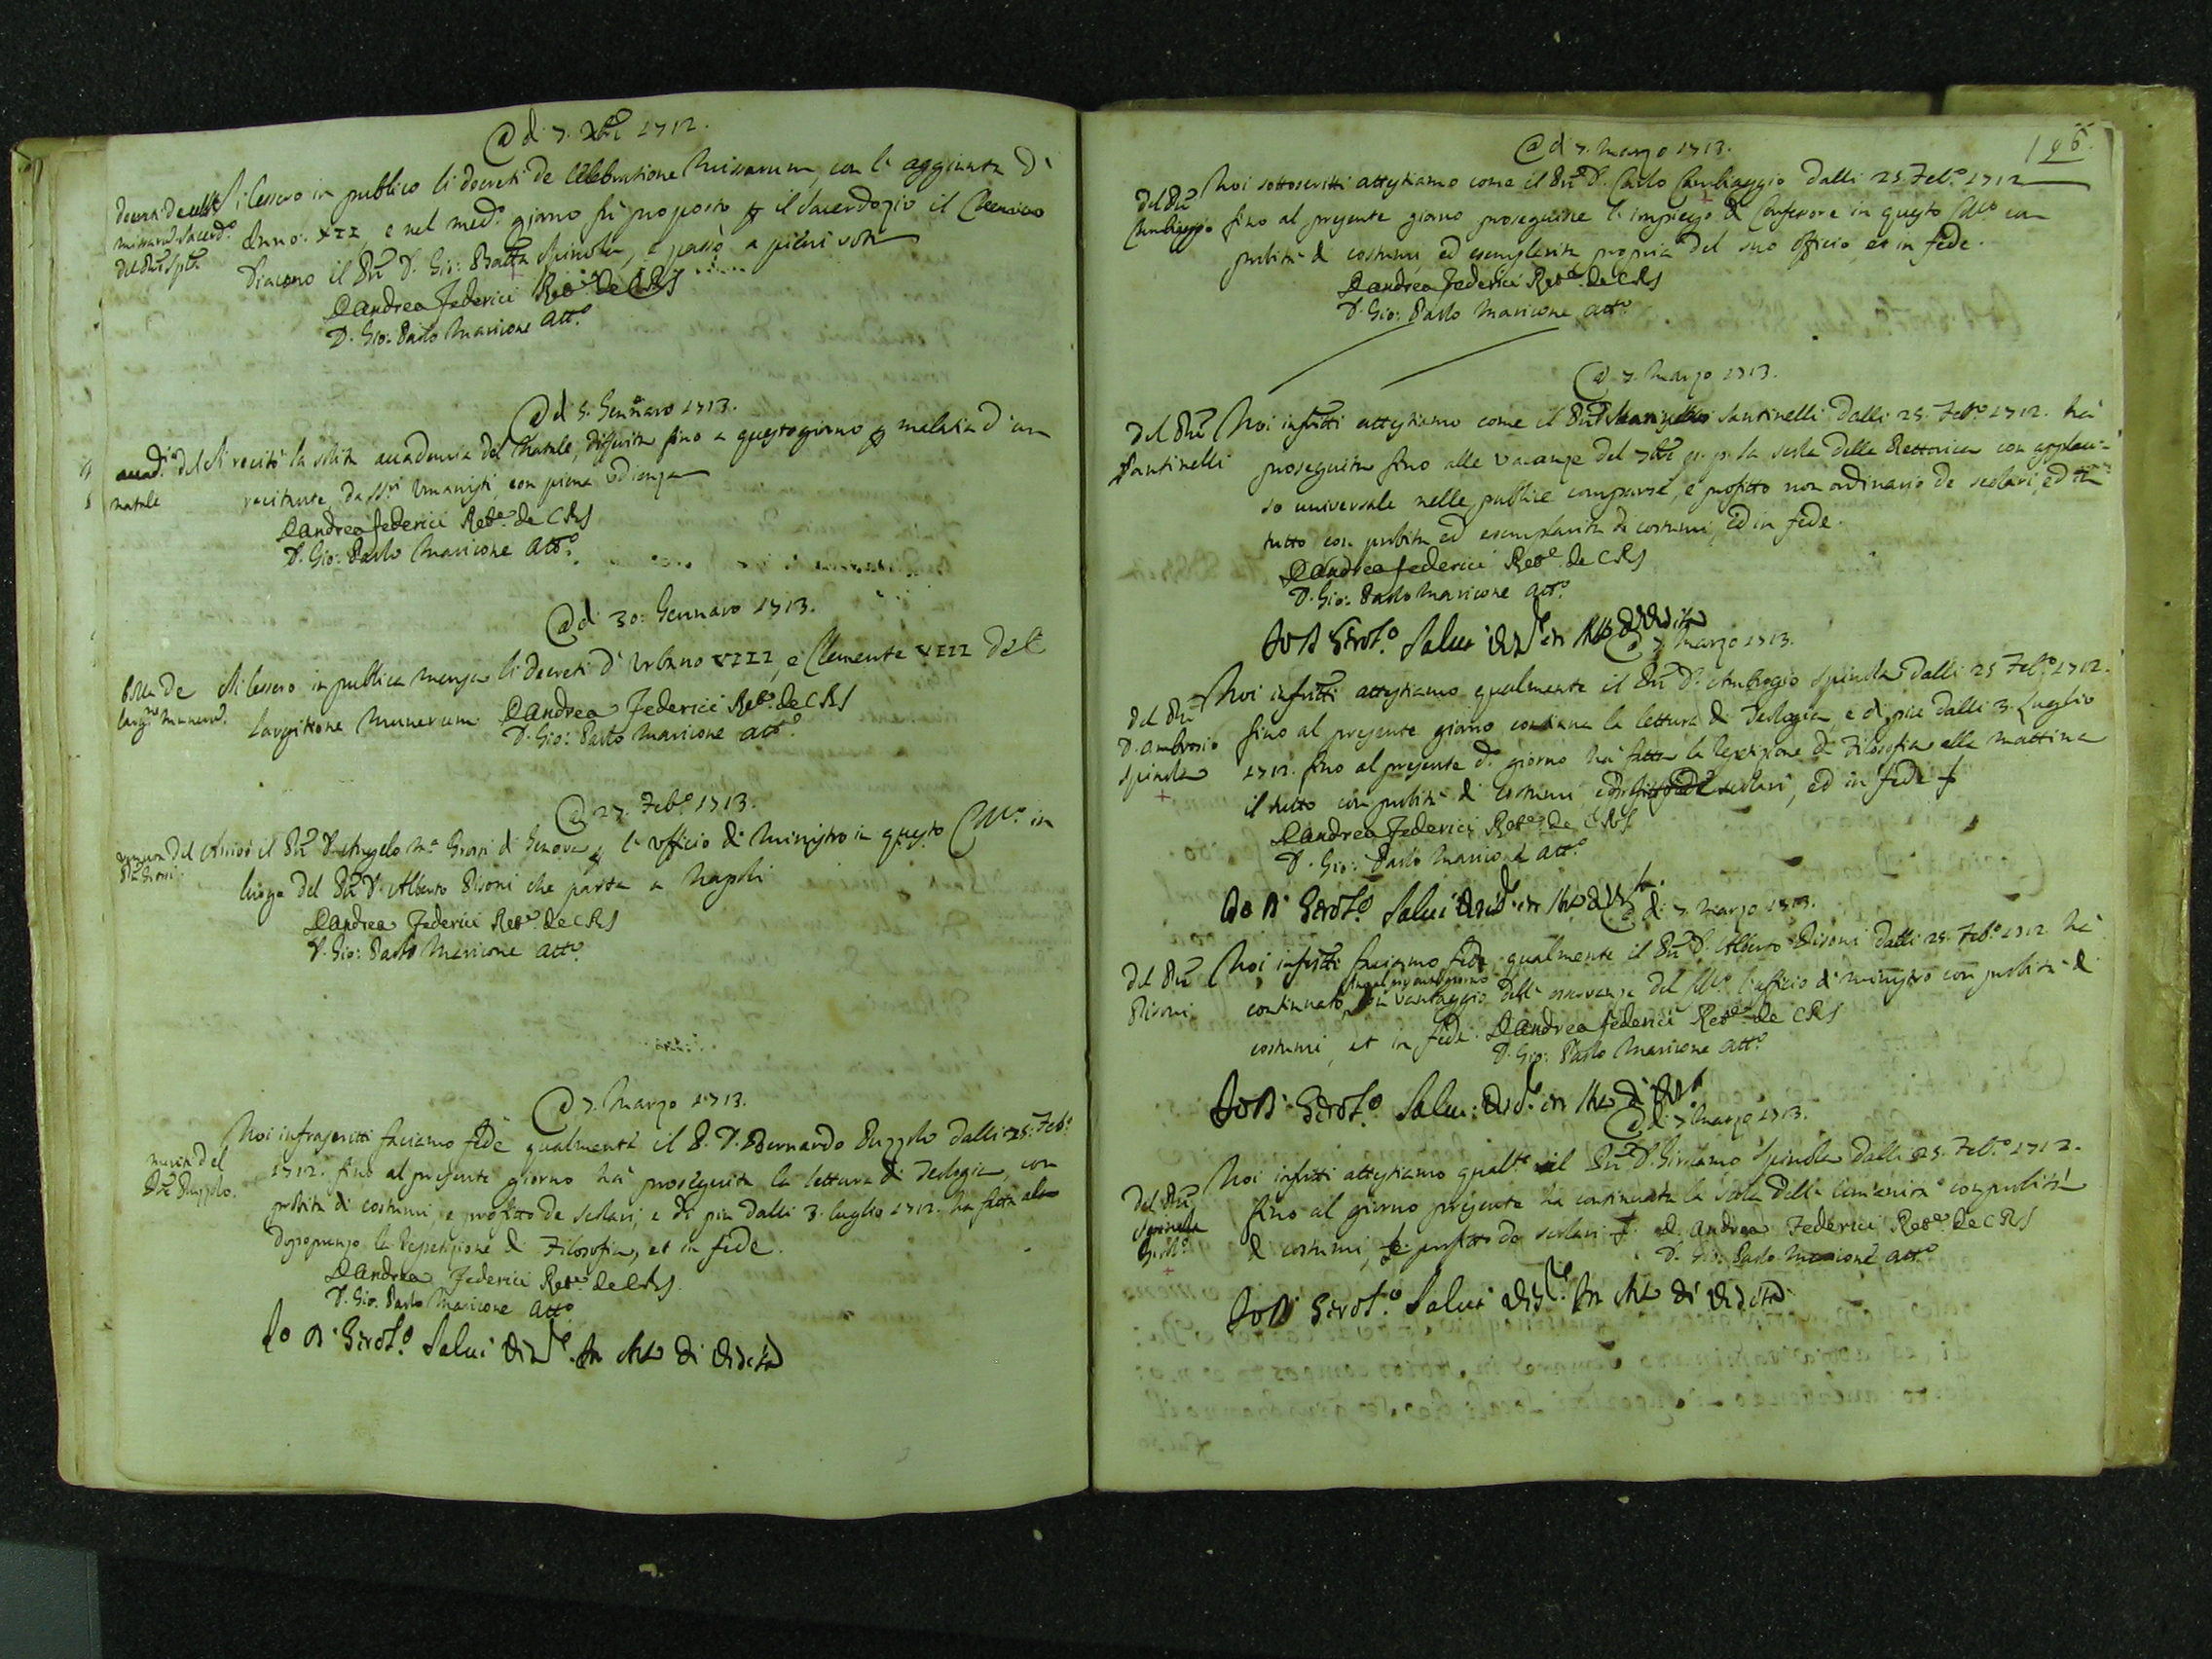 @ dì 7. Xbre 1712.
Decreti de celebr. Si lessero in publico li decreti de Celebratione Missarum, con l'aggiunta d'
missarum. Sacerd.o Inno: XII, e nel med.o giorno fù proposto p il Sacerdozio il Cherico
del Pre Spla Diacono il Pre D. Gio: Batta Spinola, e passò a pieni voti
D Andrea Federici Rett.e de CRS
D. Gio: Paolo Marione Att.o
@ dì 5. Gennaro 1713.
accad.ia del Si recitò la solita accademia del Natale, differita fino a questo giorno p malatia d'un
natale recitante, da SS.ri Umanisti, con piena udienza
D Andrea Federici Rett.e de CRS
D. Gio: Paolo Marione Att.o
@ dì 30: Gennaro 1713.
Bolla De Si lessero in publica mensa li decreti d'Urbano VIII, e Clemente VIII Del
largit.ne munerum. Largitione Munerum D Andrea Federici Rett.e de CRS
D. Gio: Paolo Marione Att.o
@ 27. Feb.o 1713.
venuta del Arrivò il Pre D. Angelo M.a Grossi di Genova p l'ufficio di Ministro in questo Coll.o in
Pre Grossi. luogo del Pre D. Alberto Pisoni che partì a Napoli
D Andrea Federici Rett.e de CRS
D. Gio: Paolo Marione Att.o
@ 7. Marzo 1713.
Noi infrascritti facciamo fede qualmente il P. D. Bernardo Puzzolo dalli 25. Feb.o
meriti del 1712. fino al presente giorno hà proseguita la lettura di Teologia, con
Pre Puzzolo. probità di costumi, e profitto de scolari, e di più dalli 3. luglio 1712. ha fatta al
dopopranzo la Repetizione di Filosofia, et in fede.
D Andrea Federici Rett.e de CRS
D. Gio. Paolo Marione Att.o
Io D. Girol.o Salui
196.
@ dì 7. Marzo 1713.
Noi sottoscritti attestiamo come il Pre D. Carlo Cambiaggio dalli 25. Feb.o 1712
del Pre Cambiaggio fino al presente giorno proseguisse l'impiego di Confessore in questo Coll.o con
probità di costumi, ed esemplarità propria del suo officio, et in fede.
D Andrea Federici Rett.e de CRS
D. Gio: Paolo Marione Att.o
@ 7. Marzo 1713.
Del Pre Noi infritti attestiamo come il Pre Santinelli dalli 25. Feb.o 1712. hà
Santinelli proseguita fino alle vacanze del 7bre la scola della Rettorica con applau-
so universale nelle publice comparse, e profitto non ordinario de scolari, ed il
tutto con probità ed esemplarità di costumi, ed in fede.
D Andrea Federici Rett.e de CRS
D. Gio: Paolo Marione Att.o
Io D Girol.o Salui
@ 7. Marzo 1713.
Noi infritti attestiamo qualmente il Pre D. Ambrogio Spinola dalli 25 Feb.o 1712.
del Pre D. Ambrosio fino al presente giorno continua la lettura di Teologia, e di più dalli 3. Luglio
Spinola 1712. fino al presente d.o giorno hà fatta la Repetizione di Filosofia alla mattina
il tutto con probità di costumi, scolari, ed in fede
D Andrea Federici Rett.e de CRS
D. Gio: Paolo Marione Att.o
Io D. Girol.o Salui
@ dì 7. Marzo 1713.
del Pre Noi infritti facciamo fede qualmente il Pre D. Alberto Pisoni dalli 25. Feb.o 1712. hà
fino al presente giorno
Pisoni. continuato, con vantaggio dell'osservanza del Coll.o l'officio di ministro con probità di
costumi, et in fede. D Andrea Federici Rett.e de CRS
D. Gio: Paolo Marione Att.o
Io D. Girol.o Salui
@ dì 7 Marzo 1713.
Noi infritti attestiamo qualte il Pre D. Girolamo Spinola dalli 25. Feb.o 1712.
del Pre Spinola fino al giorno presente ha continuata la scola dell'umanità con probità
Girol.o di costumi, profitto de scolari D. Andrea Federici Rett.e de CRS
D. Gio: Paolo Marione Att.o
Io D Girol.o Salui